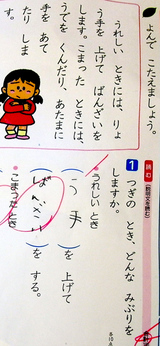 よんで こたえましょう。
うれしい ときには、りょ
う手を 上げて ばんざいを
します。こまった ときには、
うでを くんだり、あたまに
手を あて
たり しま
す。
1 読む 〔説明文を読む〕
つぎの とき、どんな みぶりを
しますか。
うれしい とき
(う手)を 上げて
ばんざい を する。
こまった とき